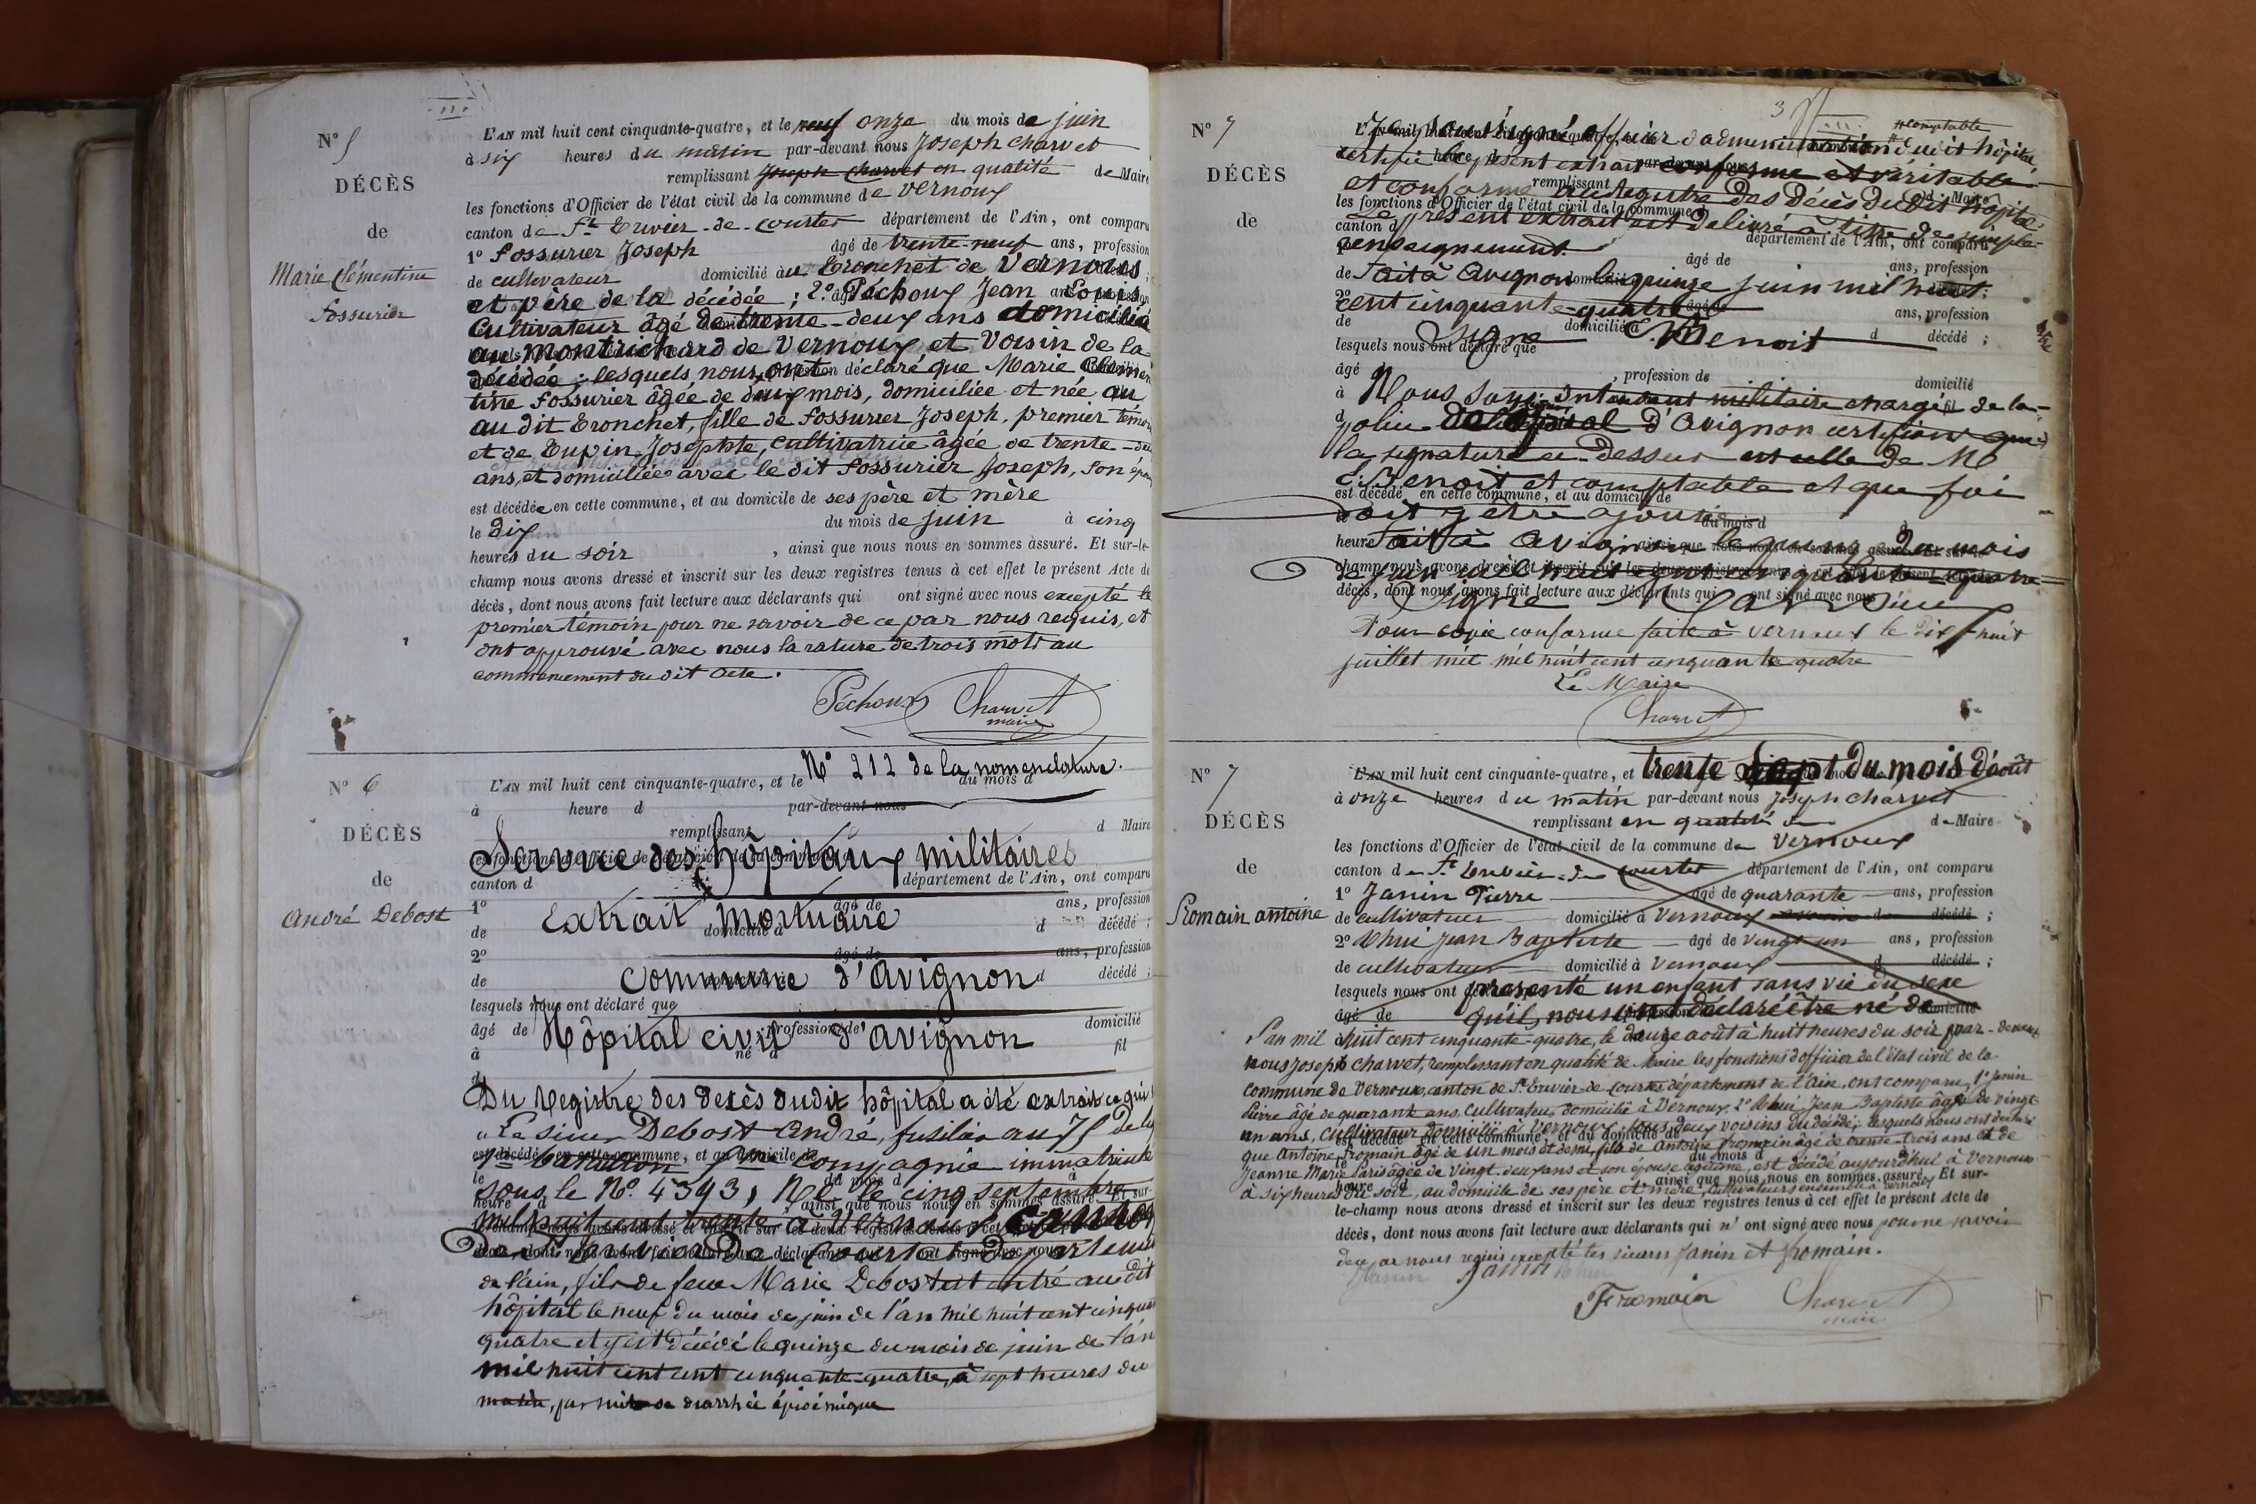 N° 5
DÉCÈS
de
Marie Clémentine
Fossurier
L'AN mil huit cent cinquante-quatre, et le neuf onze du mois de juin
à six heures du matin par-devant nous Joseph charvet
remplissant Joseph Charvet en qualité de Maire
les fonctions d'Officier de l'état civil de la commune de Vernoux
canton de St Trivier-de-Courtes département de l'Ain, ont comparu
1° Fossurier Joseph âgé de trente-neuf ans, profession
de cultivateur domicilié au Tronchet de Vernoux
et père de la décédée; 2° Péchoux Jean Louis
Cultivateur âgé de trente-deux ans domicilié
au Montrichard de Vernoux et Voisin de la
décédée; lesquels nous ont déclaré que Marie Clémen
tine Fossurier âgée de deux mois, domiciliée et née au
au dit Tronchet, fille de Fossurier Joseph, premier témoin
et de Tupin Josephte, cultivatrice âgée de trente-
ans, et domiciliée avec le dit Fossurier Joseph, son époux
est décédée en cette commune, et au domicile de ses père et mère
le dix du mois de juin à cinq
heures du soir, ainsi que nous nous en sommes assuré. Et sur-le-
champ nous avons dressé et inscrit sur les deux registres tenus à cet effet le présent Acte de
décès, dont nous avons fait lecture aux déclarants qui ont signé avec nous excepté le
premier témoin pour ne savoir de ce par nous requis, et
ont approuvé avec nous la rature de trois mots au
commencement du dit acte.
Péchoux Charvet
maire
N° 6
DÉCÈS
de
André Debost
L'AN mil huit cent cinquante-quatre, et le N° 212 de la nomenclature.
à heure d par-devant nous
remplissant d Maire
Service des hôpitaux militaires
canton d département de l'Ain, ont comparu
1° âgé de ans, profession
Extrait Mortuaire
de domicilié à d décédé;
2° âgé de ans, profession
Commune d'Avignon
de d décédé;
lesquels nous ont déclaré que
âgé de profession de domicilié
Hôpital civil d'Avignon
à né à fil
Du Registre des décès dudit hôpital a été extrait ce qui
"Le sieur Debost André, fusilier au 75 de
est décédé en cette commune, et au domicile de
bataillon compagnie immatriculé
sous le N° 4393, Né le cinq septembre
mil huit cent trente à Vernoux canton
de St Trivier de Courtes département
de l'ain, fils de feue Marie Debost est entré au dit
hôpital le neuf du mois de juin de l'an mil huit cent cinquante
quatre et y est décédé le quinze du mois de juin de l'an
mil huit cent cent cinquante-quatre, à sept heures du
matin, par suite de diarrhée épidémique
N° 7
DÉCÈS
de
3
comptable
Je soussigné officier d'administration dudit hôpital
certifie le présent extrait conforme et véritable
et conforme au Registre des Décès du dit hôpital
les fonctions d'Officier de l'état civil de la commune d
Le présent extrait est délivré à titre de simple
renseignement.
département de l'Ain, ont comparu
Fait à Avignon le quinze juin mil huit
cent cinquante-quatre
Signé E. Benoit
lesquels nous ont déclaré que d décédé;
âgé, profession de domicilié
à Nous sous Intendant militaire chargé de la
police de l'hôpital d'Avignon certifions que
la signature ci-dessus est celle de M
E. Benoit et comptable et que foi
est décédé en cette commune, et au domicile de
doit y être ajoutée
du mois d
Fait à Avignon le quinze du mois
de juin mil huit cent cinquante-quatre
décès, dont nous avons fait lecture aux déclarants qui ont signé avec nous
Signé
Pour copie conforme faite à Vernoux le dix-huit
juillet mil mil huit cent cinquante quatre
Le Maire
Charvet
N° 7
DÉCÈS
de
Fromain antoine
L'AN mil huit cent cinquante-quatre, et trente Sept du mois d'août
à onze heures du matin par-devant nous Joseph charvet
remplissant en qualité de Maire
les fonctions d'Officier de l'état civil de la commune de Vernoux
canton de St Trivier-de Courtes département de l'Ain, ont comparu
1° Janin Pierre âgé de quarante ans, profession
de cultivateur domicilié à Vernoux décédé;
2° Jean Baptiste âgé de vingt un ans, profession
de cultivateur domicilié à Vernoux d décédé;
lesquels nous ont présenté un enfant sans vie du sexe
âgé de qu'ils nous ont déclaré être né de domicilié
L'an mil huit cent cinquante-quatre, le douze août à huit heures du soir par-devant
nous Joseph charvet, remplissant en qualité de Maire les fonctions d'officier de l'état civil de la
commune de Vernoux, canton de St Trivier-de Courtes département de l'Ain, ont comparu, 1° Janin
Pierre âgé de quarante ans, cultivateur domicilié à Vernoux, 2° Jean Baptiste âgé de vingt
un ans, Cultivateur domicilié à Vernoux, tous deux voisins du décédé; lesquels nous ont déclaré
est décédé en cette commune, et au domicile de
que Antoine Fromain âgé de un mois et demi, fils de Antoine Fromain âgé de trente-trois ans et de
du mois d
Jeanne Marie Paris âgée de vingt deux ans et son épouse légitime, est décédé aujourd'hui à Vernoux
heure d ainsi que nous nous en sommes assuré. Et sur-
à six heures du soir, au domicile de ses père et mère, Cultivateurs ensemble à Vernoux
le-champ nous avons dressé et inscrit sur les deux registres tenus à cet effet le présent Acte de
décès, dont nous avons fait lecture aux déclarants qui n'ont signé avec nous pour ne savoir
de ce par nous requis excepté les sieurs Janin et Fromain.
Janin
Fromain Charvet
maire